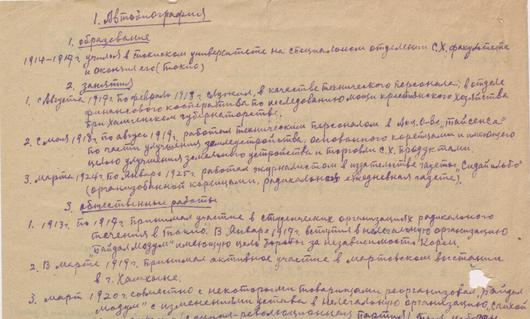 1. Автобиография
1. образование
1914-1917 г. учился в Токиском университете на специальном отделении С.Х. факультета
и окончил его (Токио)
2. занятия
1. С Августа 1917 г по февраль 1918 г. служил, в качестве технического персонала, в отделе
финансового кооператива по исследованию мощи крестьянского хозяйства
при Хамгенском губернаторстве.
2. С мая 1918 г. по август 1919 г. работал техническим персоналом в Акц. О-ве "Тайсенса"
по части улучшения земледеустройства, основанного корейцами и имеющего
целью улучшения земельного устройства и торговли С.Х. продуктами.
3. марта 1924 г. по Январь 1925 г. работал журналистом в издательстве газеты "Сидайильбо"
(организованной корейцами, радикальной ежедневная газета).
3. общественные работы
1. 1913 г. по 1917 г. принимал участие в студенческих организациях радикального
течения в Токио. В Январе 1917 г. вступил в нелегальную организацию
"Пайдал модум" имеющую цель борьбы за независимость Кореи.
2. В марте 1919 г. принимал активное участие в мартовском восстании
в г. Хамхынге.
3. март 1920 г. совместно с некоторыми товарищами реорганизовал "Пайдал
модум" с изменениями устава в нелегальную организацию
революционная партия